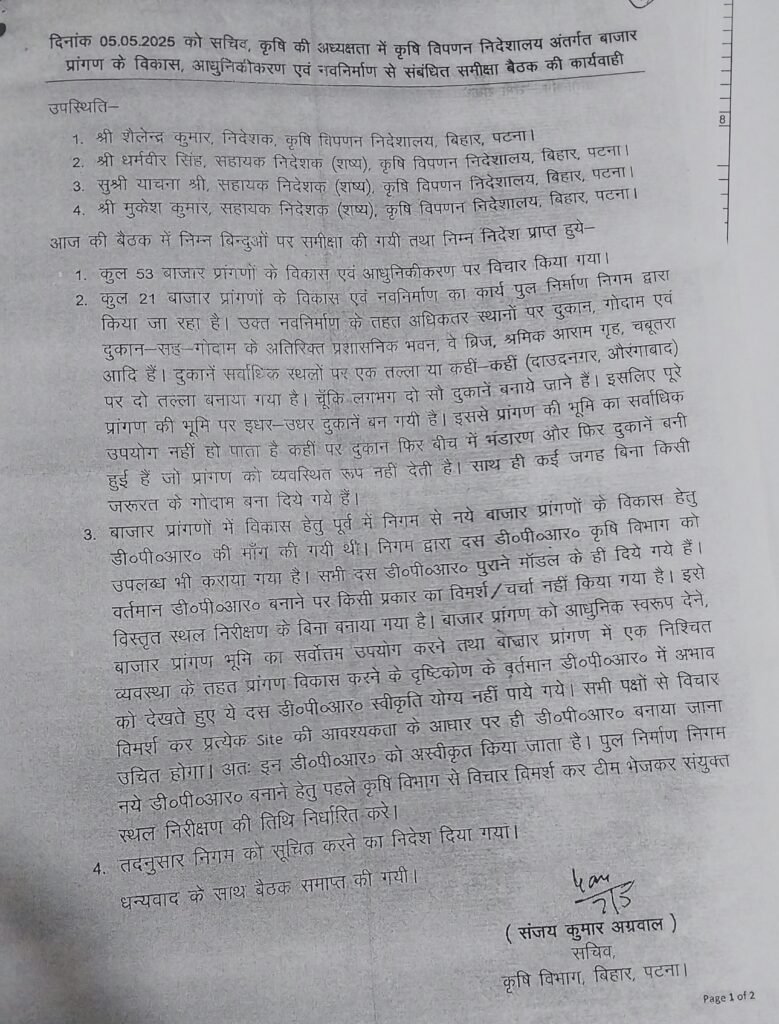 दिनांक 05.05.2025 को सचिव, कृषि की अध्यक्षता में कृषि विपणन निदेशालय अंतर्गत बाजार
प्रांगण के विकास, आधुनिकीकरण एवं नवनिर्माण से संबंधित समीक्षा बैठक की कार्यवाही
उपस्थिति–
1. श्री शैलेन्द्र कुमार, निदेशक, कृषि विपणन निदेशालय, बिहार, पटना।
2. श्री धर्मवीर सिंह, सहायक निदेशक (शष्य), कृषि विपणन निदेशालय, बिहार, पटना।
3. सुश्री याचना श्री, सहायक निदेशक (शष्य), कृषि विपणन निदेशालय, बिहार, पटना।
4. श्री मुकेश कुमार, सहायक निदेशक (शष्य), कृषि विपणन निदेशालय, बिहार, पटना।
आज की बैठक में निम्न बिन्दुओं पर समीक्षा की गयी तथा निम्न निदेश प्राप्त हुये–
1. कुल 53 बाजार प्रांगणों के विकास एवं आधुनिकीकरण पर विचार किया गया।
2. कुल 21 बाजार प्रांगणों के विकास एवं नवनिर्माण का कार्य पुल निर्माण निगम द्वारा
किया जा रहा है। उक्त नवनिर्माण के तहत अधिकतर स्थानों पर दुकान, गोदाम एवं
दुकान–सह–गोदाम के अतिरिक्त प्रशासनिक भवन, वे ब्रिज, श्रमिक आराम गृह, चबूतरा
आदि हैं। दुकानें सर्वाधिक स्थलों पर एक तल्ला या कहीं–कहीं (दाउदनगर, औरंगाबाद)
पर दो तल्ला बनाया गया है। चूँकि लगभग दो सौ दुकानें बनाये जाने हैं। इसलिए पूरे
प्रांगण की भूमि पर इधर–उधर दुकानें बन गयी है। इससे प्रांगण की भूमि का सर्वाधिक
उपयोग नहीं हो पाता है कहीं पर दुकान फिर बीच में भंडारण और फिर दुकानें बनी
हुई हैं जो प्रांगण को व्यवस्थित रूप नहीं देती है। साथ ही कई जगह बिना किसी
जरूरत के गोदाम बना दिये गये हैं।
3. बाजार प्रांगणों में विकास हेतु पूर्व में निगम से नये बाजार प्रांगणों के विकास हेतु
डी०पी०आर० की माँग की गयी थी। निगम द्वारा दस डी०पी०आर० कृषि विभाग को
उपलब्ध भी कराया गया है। सभी दस डी०पी०आर० पुराने मॉडल के ही दिये गये हैं।
वर्तमान डी०पी०आर० बनाने पर किसी प्रकार का विमर्श/चर्चा नहीं किया गया है। इसे
विस्तृत स्थल निरीक्षण के बिना बनाया गया है। बाजार प्रांगण को आधुनिक स्वरूप देने,
बाजार प्रांगण भूमि का सर्वोत्तम उपयोग करने तथा बाजार प्रांगण में एक निश्चित
व्यवस्था के तहत प्रांगण विकास करने के दृष्टिकोण के वर्तमान डी०पी०आर० में अभाव
को देखते हुए ये दस डी०पी०आर० स्वीकृति योग्य नहीं पाये गये। सभी पक्षों से विचार
विमर्श कर प्रत्येक Site की आवश्यकता के आधार पर ही डी०पी०आर० बनाया जाना
उचित होगा। अतः इन डी०पी०आर० को अस्वीकृत किया जाता है। पुल निर्माण निगम
नये डी०पी०आर० बनाने हेतु पहले कृषि विभाग से विचार विमर्श कर टीम भेजकर संयुक्त
स्थल निरीक्षण की तिथि निर्धारित करे।
4. तदनुसार निगम को सूचित करने का निदेश दिया गया।
धन्यवाद के साथ बैठक समाप्त की गयी।
(संजय कुमार अग्रवाल)
सचिव,
कृषि विभाग, बिहार, पटना।
Page 1 of 2
8